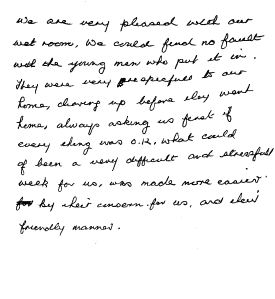 We are very pleased with our
wet room, We could find no fault
with the young men who put it in.
They were very respecfull to our
home, clearing up before they went
home, always asking us first if
every thing was O.K. what could
of been a very difficult and stressfull
week for us, was made more easier
by their concern for us, and their
friendly manner.